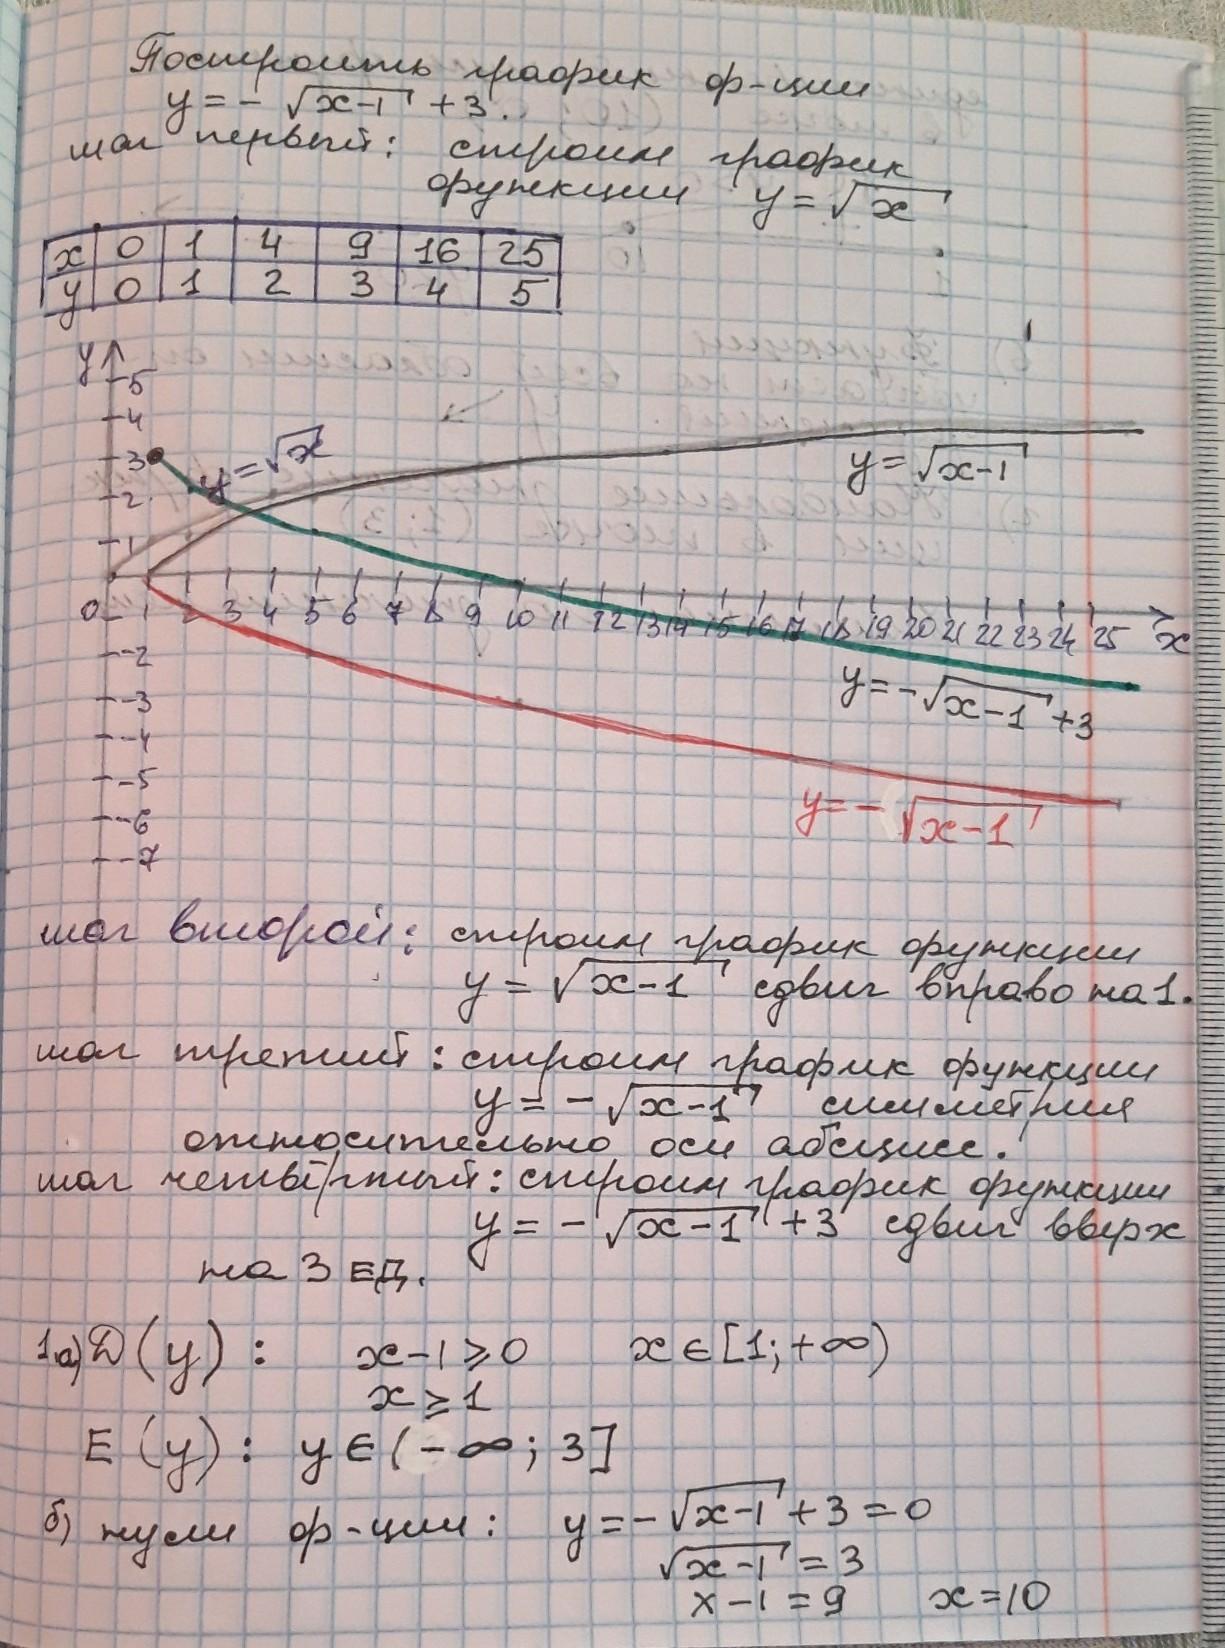 Построить график ф-ции
y = - √x-1 + 3.
шаг первый: строим график
функции y = √x
x 0 1 4 9 16 25
y 0 1 2 3 4 5
y
5
4
3
2
1
y = √x
y = √x-1
0 1 2 3 4 5 6 7 8 9 10 11 12 13 14 15 16 17 18 19 20 21 22 23 24 25 x
-2
-3
-4
-5
-6
-7
y = -√x-1 + 3
y = - √x-1
шаг второй: строим график функции
y = √x-1 сдвиг вправо на 1.
шаг третий: строим график функции
y = - √x-1 симметрия
относительно оси абсцисс.
шаг четвёртый: строим график функции
y = - √x-1 + 3 сдвиг вверх
на 3 ед.
1.а) D(y): x-1 ⩾ 0 x ∈ [1; +∞)
x ⩾ 1
E(y): y ∈ (-∞; 3]
б) нули ф-ции: y = -√x-1 + 3 = 0
√x-1 = 3
x-1 = 9 x = 10